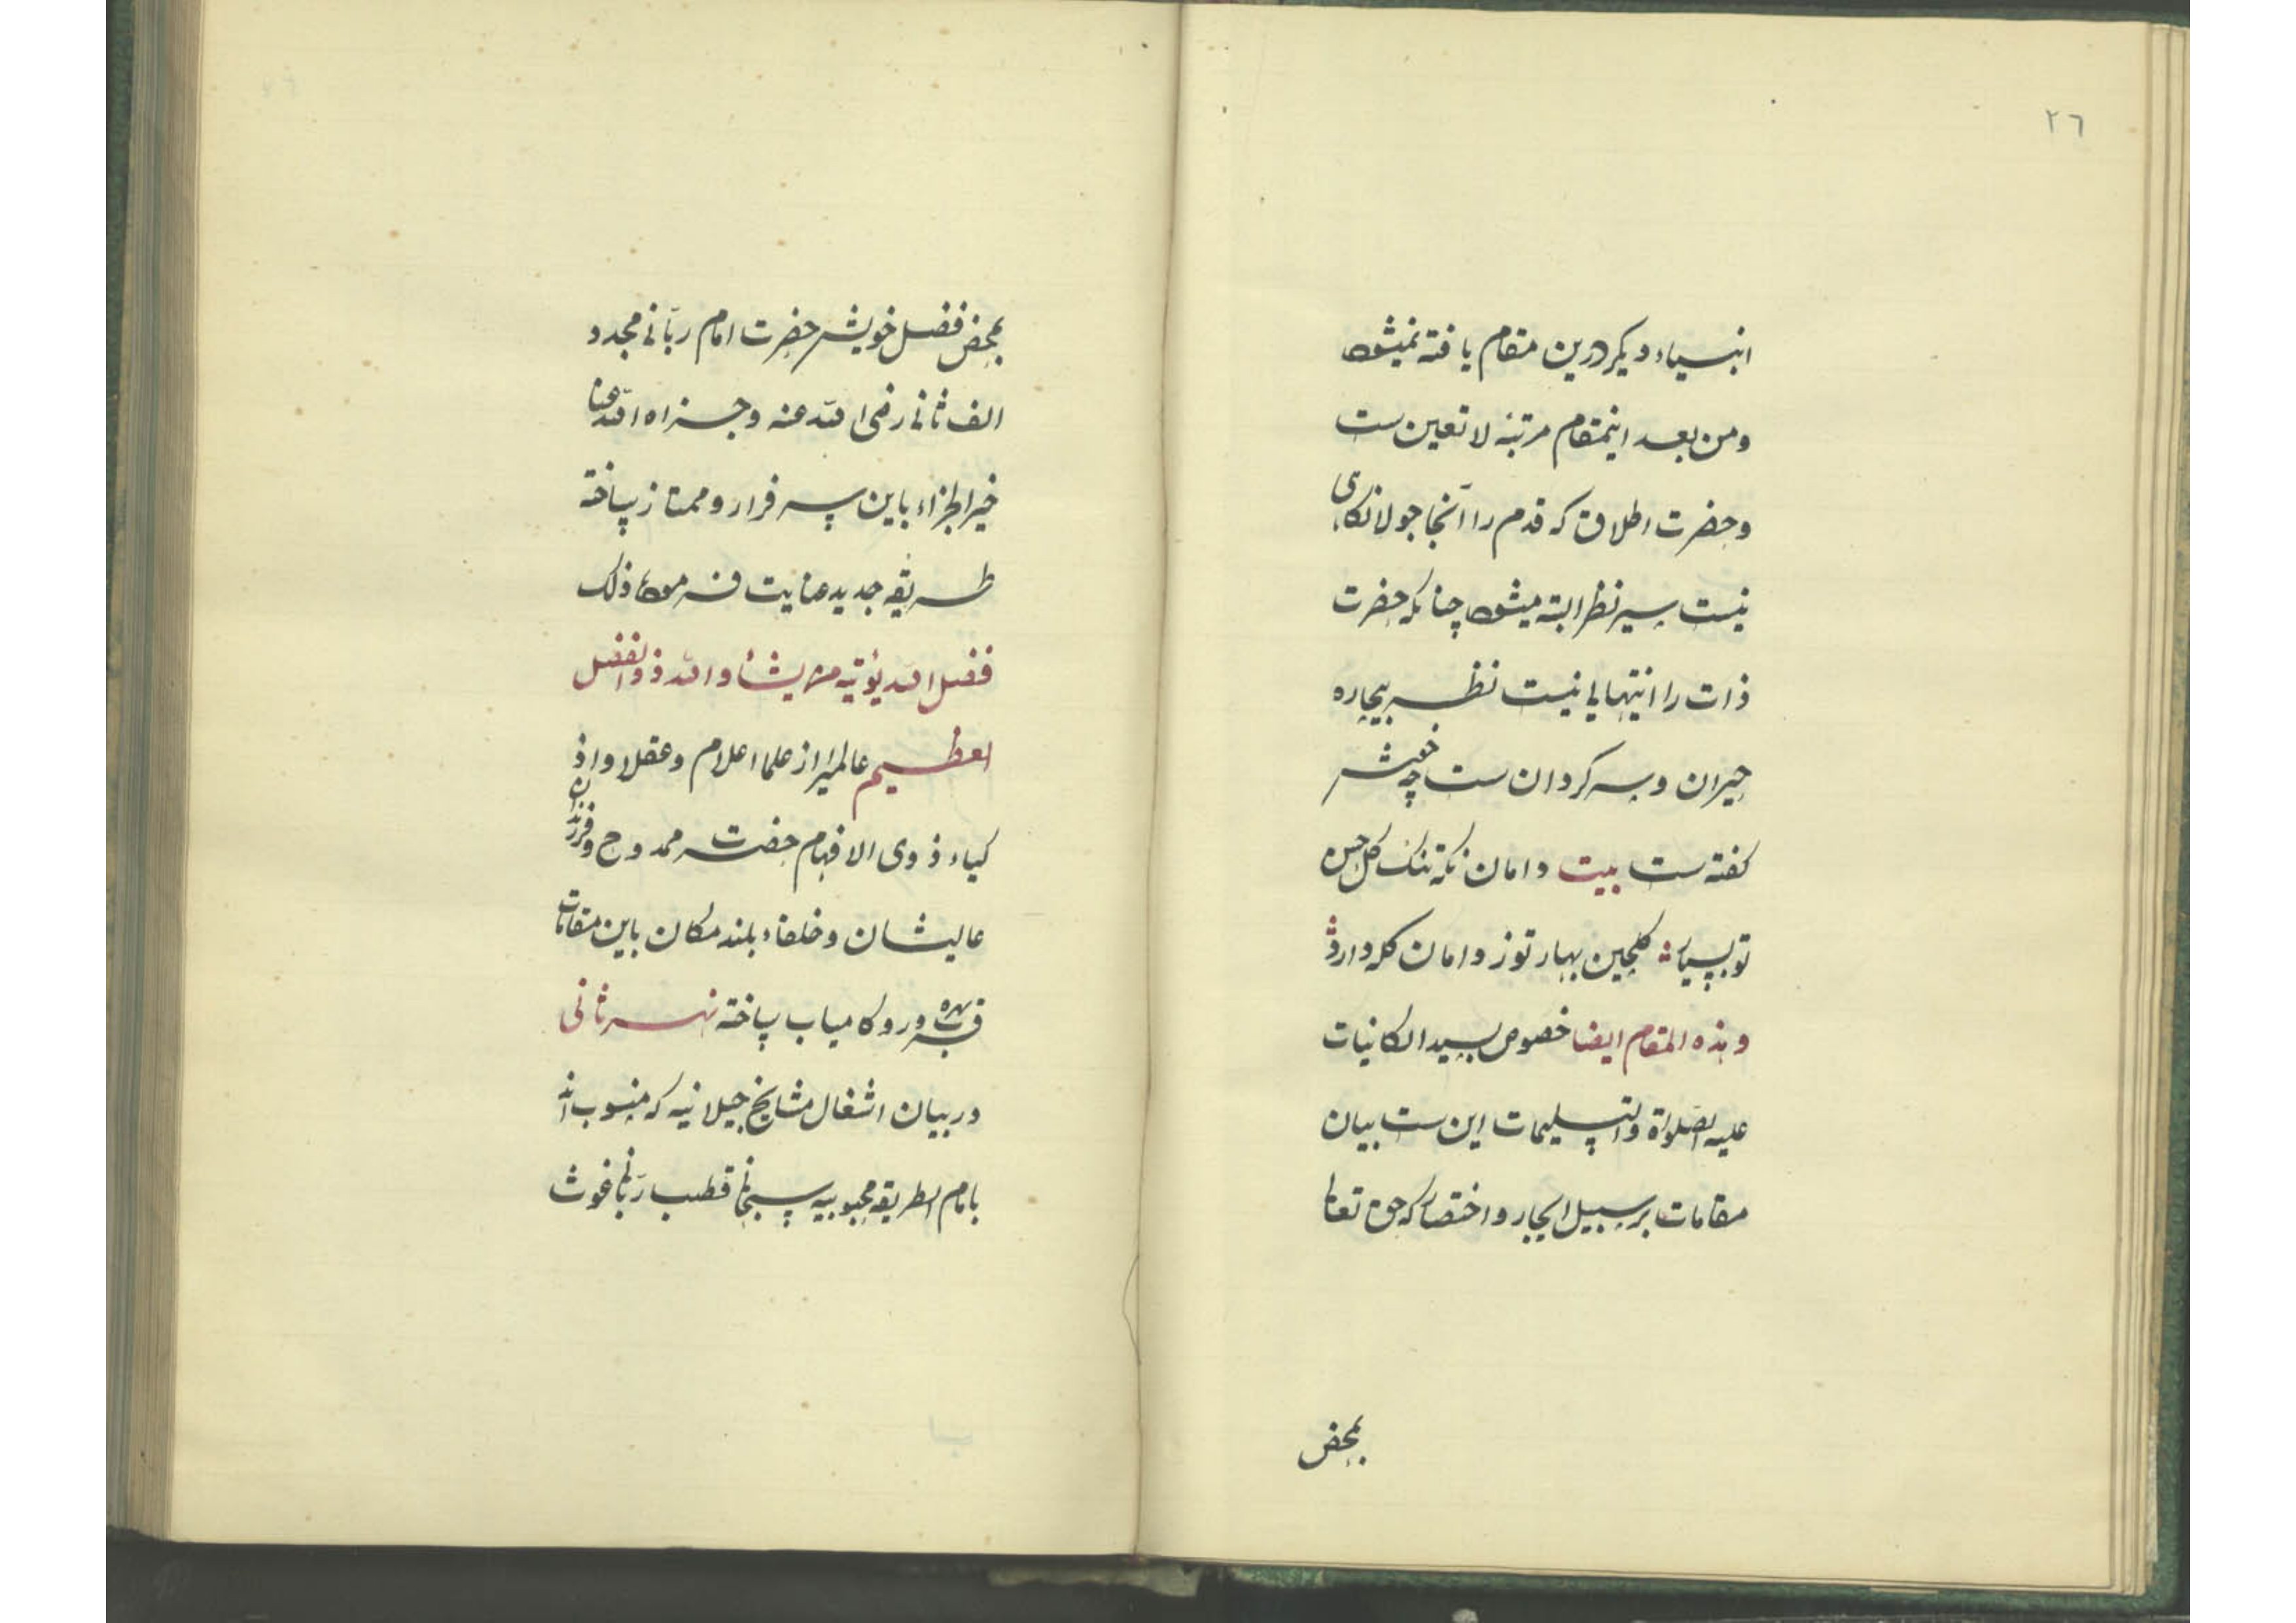 ٢٦
انبیاء دیکر درین مقام یافته نمیشود
ومن بعد اینمقام مرتبهٔ لاتعین ست
وحضرت اطلاق که قدم را آنجا جولانکاهی
نیست سیر نظر البته میشود چنانکه حضرت
ذات را انتهایی نیست نظر بیچاره
حیران و سرکردان ست چه خوش
کفته ست بیت دامان نکه تنک کل حسن
تو بسیار کلچین بهار تو ز دامان کله دارد
وهذه المقام ایضا خصوص بسید الکائنات
علیه الصلوة والتسلیمات این ست بیان
مقامات بر سبیل ایجاز و اختصار که حق تعالی
بمحض
بمحض فضل خویش حضرت امام ربّانی مجدد
الف ثانی رضی الله عنه وجزاه الله عنا
خیر الجزاء باین سرفراز و ممتاز ساخته
طریقه جدید عنایت فرموده ذلک
فضل الله یؤتیه من یشاء والله ذوالفضل
العظیم عالمیرا از علما اعلام وعقلا واذ
کیاء ذوی الافهام حضرت ممدوح وفرزندان
عالیشان وخلفاء بلند مکان باین مقامات
قرب بهره ور و کامیاب ساخته نهر ثانی
در بیان اشغال مشایخ جیلانیه که منسوب اند
بامام الطریقه محبوبیه سبحانی قطب ربّانی غوث